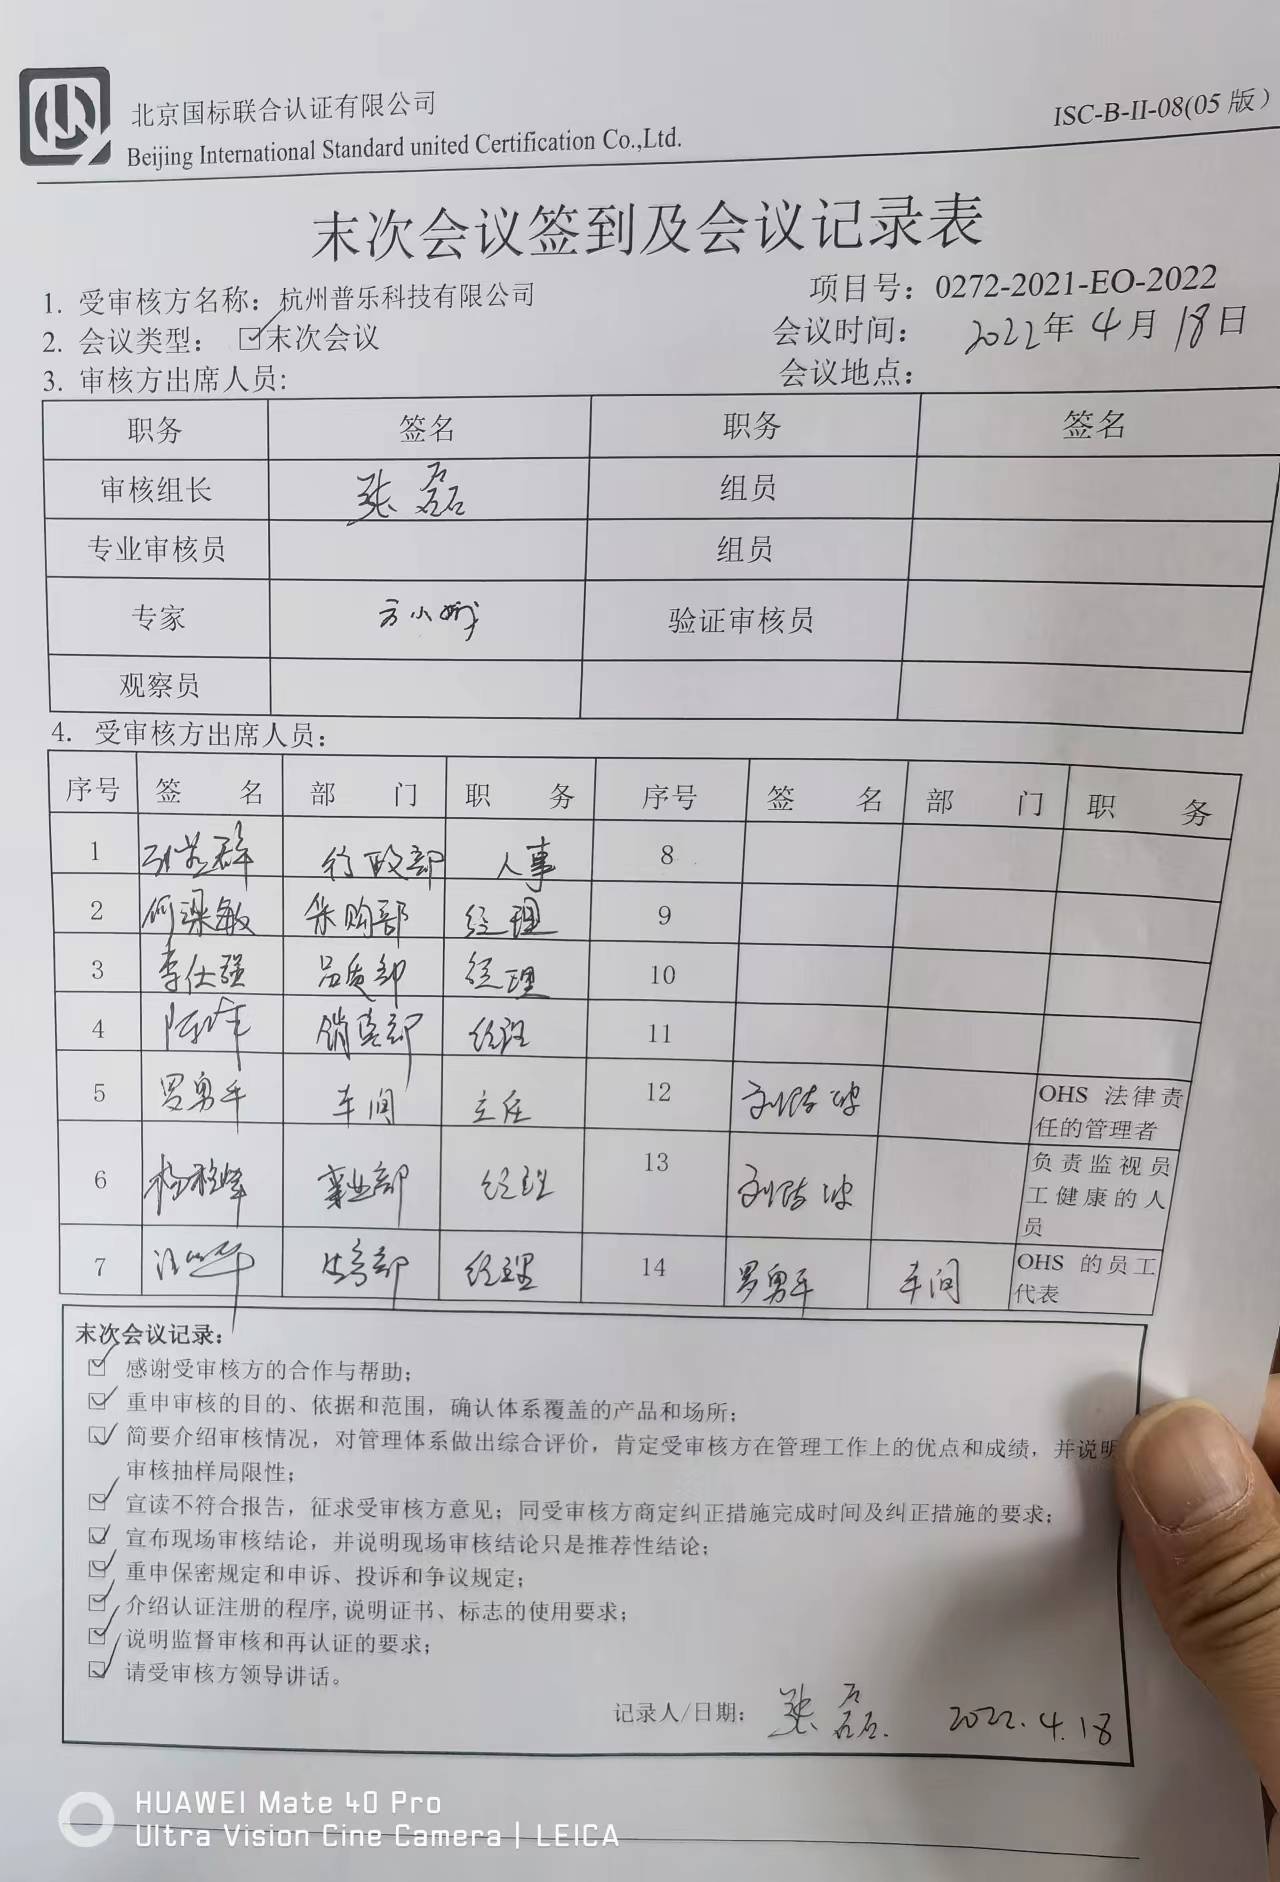 北京国标联合认证有限公司
Beijing International Standard united Certification Co.,Ltd.
ISC-B-II-08(05 版)
末次会议签到及会议记录表
1. 受审核方名称：杭州普乐科技有限公司 项目号：0272-2021-EO-2022
2. 会议类型： ☑末次会议 会议时间： 2022年 4月 18日
3. 审核方出席人员: 会议地点：
职务 签名 职务 签名
审核组长 张磊 组员
专业审核员 组员
专家 方小 验证审核员
观察员
4. 受审核方出席人员：
序号 签 名 部 门 职 务 序号 签 名 部 门 职 务
1 行政部 人事 8
2 何梁敏 采购部 经理 9
3 李仕强 品质部 经理 10
4 销售部 经理 11
5 罗勇平 车间 主任 12 OHS 法律责
任的管理者
6 事业部 经理 13 负责监视员
工健康的人
员
7 经理 14 罗勇平 车间 OHS 的员工
代表
末次会议记录：
☑ 感谢受审核方的合作与帮助；
☑ 重申审核的目的、依据和范围，确认体系覆盖的产品和场所；
☑ 简要介绍审核情况，对管理体系做出综合评价，肯定受审核方在管理工作上的优点和成绩，并说明
审核抽样局限性；
☑ 宣读不符合报告，征求受审核方意见；同受审核方商定纠正措施完成时间及纠正措施的要求；
☑ 宣布现场审核结论，并说明现场审核结论只是推荐性结论；
☑ 重申保密规定和申诉、投诉和争议规定；
☑ 介绍认证注册的程序,说明证书、标志的使用要求；
☑ 说明监督审核和再认证的要求；
☑ 请受审核方领导讲话。
记录人/日期： 张磊. 2022.4.18
HUAWEI Mate 40 Pro
Ultra Vision Cine Camera | LEICA